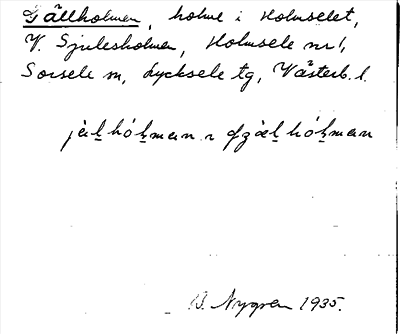 Gällholmen, holme i Holmselet,
V. Sjulesholmen, Holmsele nr 1,
Sorsele sn, Lycksele tg, Västerb. l.
jäḻhóḻmɐn ɔ gäḻhóḻmɐn
B. Nygren 1935.